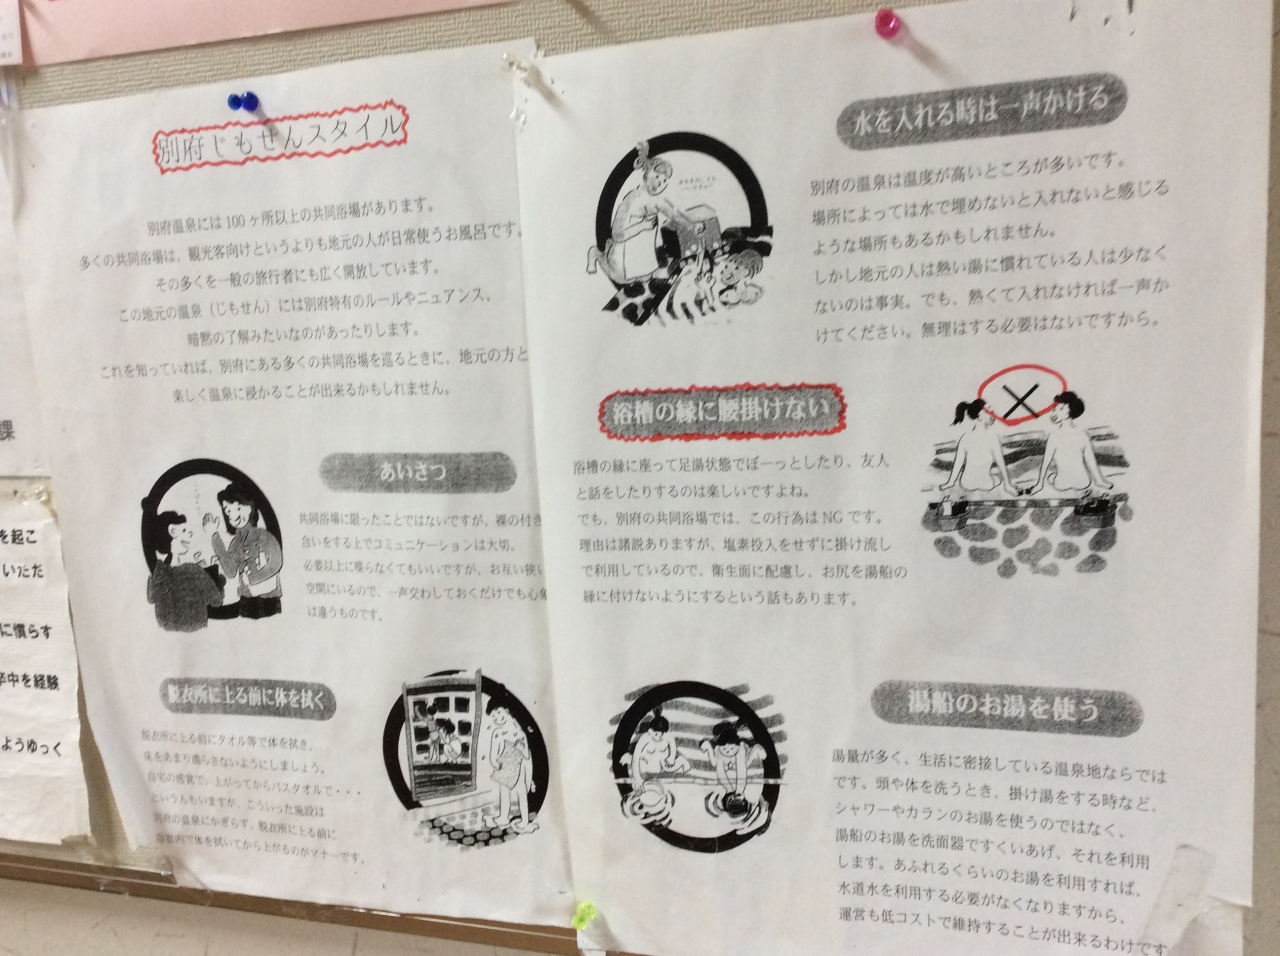 別府じもせんスタイル
別府温泉には100ヶ所以上の共同浴場があります。
多くの共同浴場は、観光客向けというよりも地元の人が日常使うお風呂です。
その多くを一般の旅行者にも広く開放しています。
この地元の温泉（じもせん）には別府特有のルールやニュアンス、
暗黙の了解みたいなのがあったりします。
これを知っていれば、別府にある多くの共同浴場を巡るときに、地元の方と
楽しく温泉に浸かることが出来るかもしれません。
あいさつ
共同浴場に限ったことではないですが、裸の付き
合いをする上でコミュニケーションは大切。
必要以上に喋らなくてもいいですが、お互い狭い
空間にいるので、一声交わしておくだけでも心象
は違うものです。
脱衣所に上る前に体を拭く
脱衣所に上る前にタオル等で体を拭き、
床をあまり濡らさないようにしましょう。
自宅の感覚で、上がってからバスタオルで・・・
という人もいますが、こういった施設は
別府の温泉にかぎらず、脱衣所に上る前に
浴室内で体を拭いてから上がるのがマナーです。
水を入れる時は一声かける
別府の温泉は温度が高いところが多いです。
場所によっては水で埋めないと入れないと感じる
ような場所もあるかもしれません。
しかし地元の人は熱い湯に慣れている人は少なく
ないのは事実。でも、熱くて入れなければ一声か
けてください。無理はする必要はないですから。
浴槽の縁に腰掛けない
浴槽の縁に座って足湯状態でぼーっとしたり、友人
と話をしたりするのは楽しいですよね。
でも、別府の共同浴場では、この行為はNGです。
理由は諸説ありますが、塩素投入をせずに掛け流し
で利用しているので、衛生面に配慮し、お尻を湯船の
縁に付けないようにするという話もあります。
湯船のお湯を使う
湯量が多く、生活に密接している温泉地ならでは
です。頭や体を洗うとき、掛け湯をする時など、
シャワーやカランのお湯を使うのではなく、
湯船のお湯を洗面器ですくいあげ、それを利用
します。あふれるくらいのお湯を利用すれば、
水道水を利用する必要がなくなりますから、
運営も低コストで維持することが出来るわけです
課
を起こ
いただ
に慣らす
卒中を経験
ようゆっく